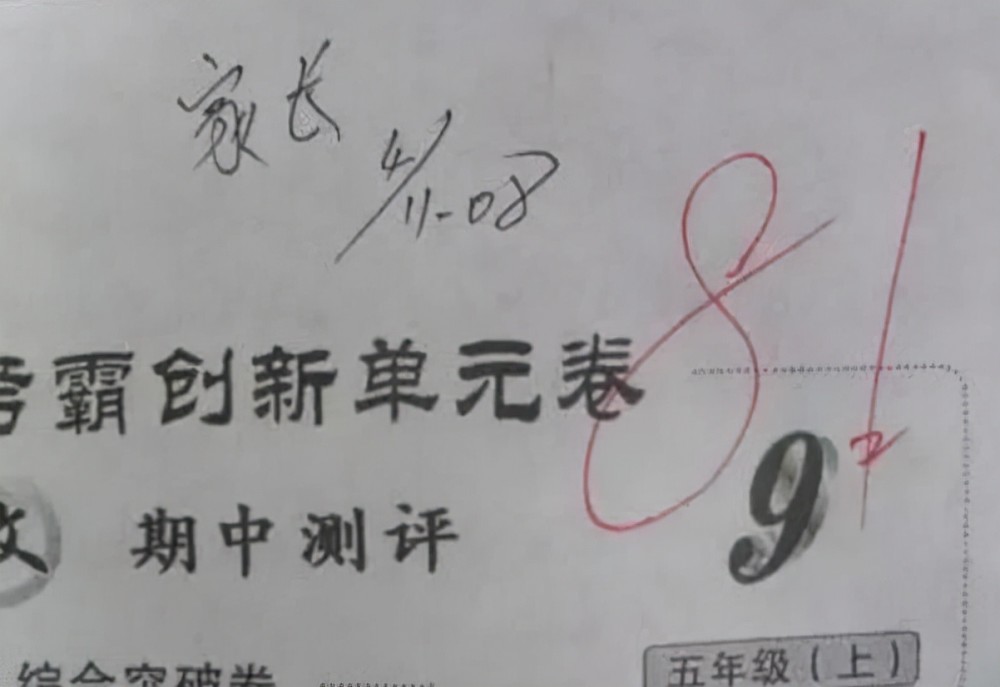 家长
4/11-08
81
考霸创新单元卷
9
期中测评
综合突破卷
五年级(上)